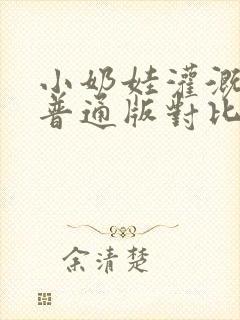 小奶娃灌溉
普通版對比
余清楚